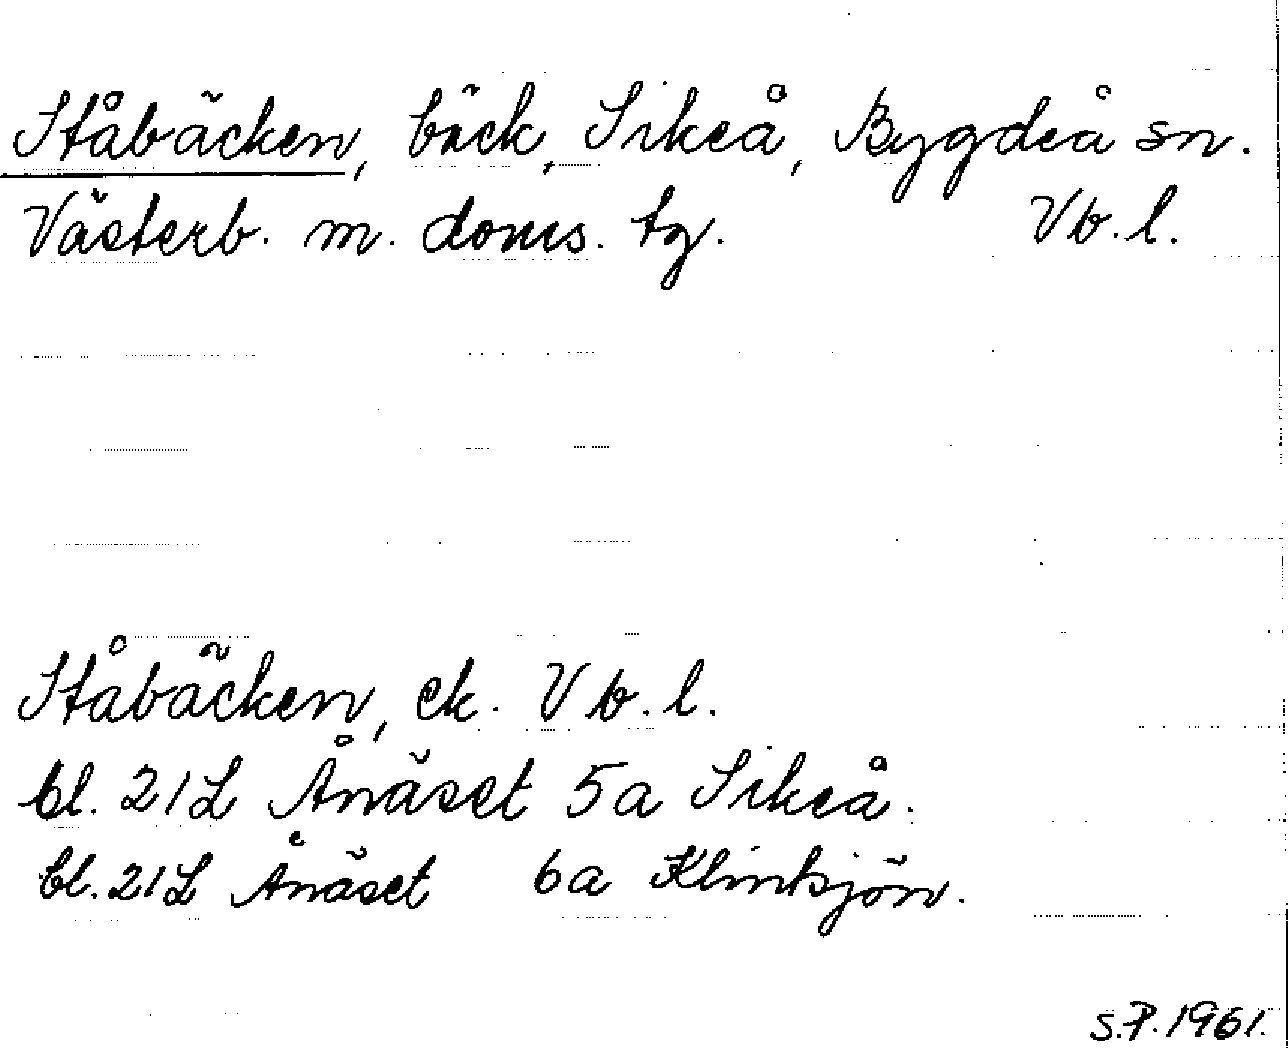 Ståbäcken, bäck, Sikeå, Bygdeå sn.
Västerb. m. doms. tg. Vb. l.
Ståbäcken, ek. Vb. l.
bl. 21L Ånäset 5a Sikeå.
bl. 21L Ånäset 6a Klinksjön.
S.P. 1961.